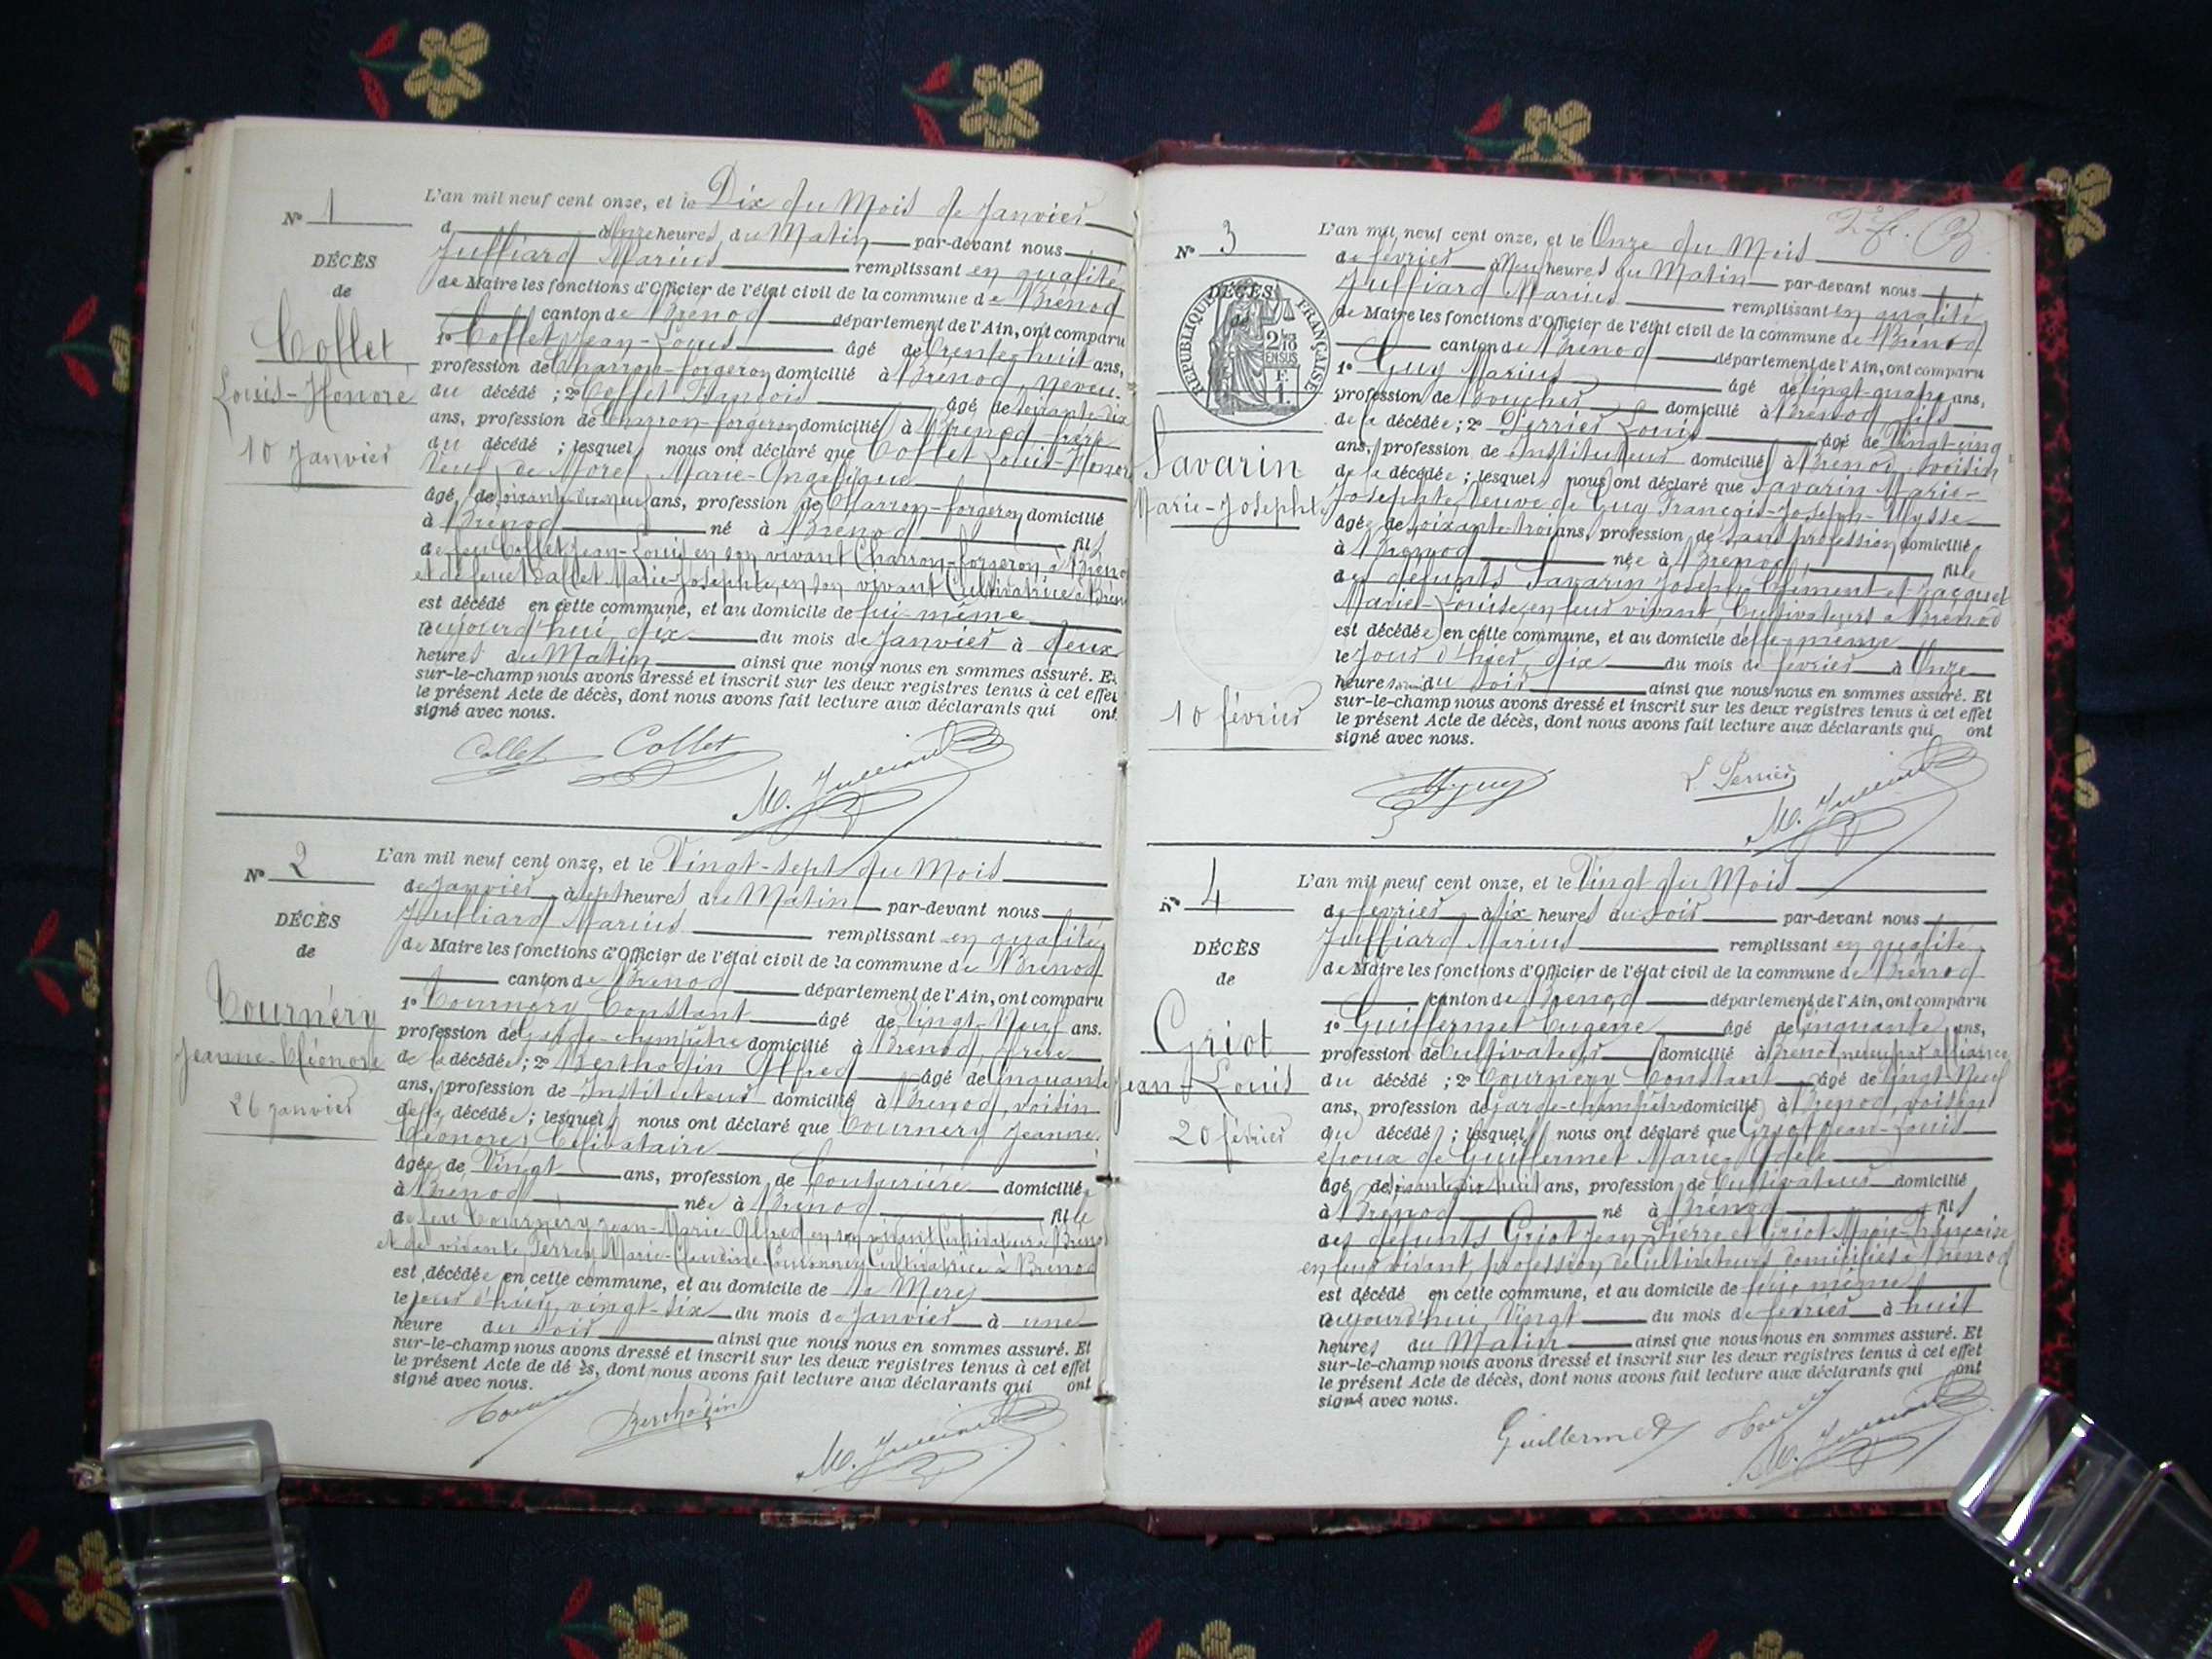 Nº 1
DÉCÈS
de
Collet
Louis-Honoré
10 Janvier
L'an mil neuf cent onze, et le Dix du Mois de Janvier
à Onze heures du Matin par-devant nous
Julliard Marius remplissant en qualité
de Maire les fonctions d'Officier de l'état civil de la commune de Brénod
canton de Brénod département de l'Ain, ont comparu
1º Collet Jean-Louis âgé de trente-huit ans,
profession de Charron-forgeron domicilié à Brénod, neveu
du décédé ; 2º Collet François âgé de soixante-dix
ans, profession de Charron-forgeron domicilié à Brénod frère
du décédé ; lesquels nous ont déclaré que Collet Louis-Honoré
Veuf de Morel Marie-Angélique
âgé de soixante-dix-neuf ans, profession de Charron-forgeron domicilié
à Brénod né à Brénod fils
de feu Collet Jean-Louis en son vivant Charron-forgeron à Brénod
et de feue Ballet Marie-Josephte, en son vivant Cultivatrice à Brénod
est décédé en cette commune, et au domicile de lui-même
aujourd'hui dix du mois de Janvier à deux
heures du Matin ainsi que nous nous en sommes assuré. Et
sur-le-champ nous avons dressé et inscrit sur les deux registres tenus à cet effet
le présent Acte de décès, dont nous avons fait lecture aux déclarants qui ont
signé avec nous.
Collet Collet
M. Julliard
Nº 2
DÉCÈS
de
Tournéry
Jeanne-Eléonore
26 janvier
L'an mil neuf cent onze, et le Vingt-sept du Mois
de Janvier à sept heures du Matin par-devant nous
Julliard Marius remplissant en qualité
de Maire les fonctions d'Officier de l'état civil de la commune de Brénod
canton de Brénod département de l'Ain, ont comparu
1º Tournéry Constant âgé de Vingt-Neuf ans.
profession de Garde-champêtre domicilié à Brénod, frère
de la décédée ; 2º Berthodin Alfred âgé de Cinquante
ans, profession de Instituteur domicilié à Brénod, voisin
de la décédée ; lesquels nous ont déclaré que Tournéry Jeanne
Eléonore, Célibataire
âgée de Vingt ans, profession de Couturière domiciliée
à Brénod née à Brénod fille
de feu Tournéry Jean-Marie Alfred en son vivant Cultivateur à Brénod
et de vivante Perret Marie-Claudine Cultivatrice à Brénod
est décédée en cette commune, et au domicile de sa Mère
le jour d'hier, vingt-six du mois de Janvier à une
heure du soir ainsi que nous nous en sommes assuré. Et
sur-le-champ nous avons dressé et inscrit sur les deux registres tenus à cet effet
le présent Acte de décès, dont nous avons fait lecture aux déclarants qui ont
signé avec nous.
Berthodin
M. Julliard
2e f.
Nº 3
DÉCÈS
de
RÉPUBLIQUE FRANÇAISE
2/10 EN SUS
F. 1.
Savarin
Marie-Josephte
10 février
L'an mil neuf cent onze, et le Onze du Mois
de février à Neuf heures du Matin par-devant nous
Julliard Marius remplissant en qualité
de Maire les fonctions d'Officier de l'état civil de la commune de Brénod
canton de Brénod département de l'Ain, ont comparu
1º Guy Marius âgé de Vingt-quatre ans,
profession de Boucher domicilié à Brénod fils
de la décédée ; 2º Perrier Louis âgé de Vingt-cinq
ans, profession de Instituteur domicilié à Brénod, voisin
de la décédée ; lesquels nous ont déclaré que Savarin Marie-
Josephte, Veuve de Guy François-Joseph-Ulysse
âgée de soixante-trois ans, profession de sans profession domiciliée
à Brénod née à Brénod fille
des défunts Savarin Joseph Clément et Jacquet
Marie-Louise, en leur vivant, Cultivateurs à Brénod
est décédée en cette commune, et au domicile d'elle-même
le Jour d'hier, dix du mois de février à Onze
heures du soir ainsi que nous nous en sommes assuré. Et
sur-le-champ nous avons dressé et inscrit sur les deux registres tenus à cet effet
le présent Acte de décès, dont nous avons fait lecture aux déclarants qui ont
signé avec nous.
M. Guy L. Perrier
M. Julliard
Nº 4
DÉCÈS
de
Griot
Jean-Louis
20 février
L'an mil neuf cent onze, et le Vingt du Mois
de février à six heures du soir par-devant nous
Julliard Marius remplissant en qualité
de Maire les fonctions d'Officier de l'état civil de la commune de Brénod
canton de Brénod département de l'Ain, ont comparu
1º Guillermet Eugène âgé de Cinquante ans,
profession de Cultivateur domicilié à Brénod, neveu par alliance
du décédé ; 2º Tournéry Constant âgé de Vingt-Neuf
ans, profession de garde-champêtre domicilié à Brénod, voisin
du décédé ; lesquels nous ont déclaré que Griot Jean-Louis
époux de Guillermet Marie Adèle
âgé de soixante-dix-huit ans, profession de Cultivateur domicilié
à Brénod né à Brénod fils
des défunts Griot Jean-Pierre et Griot Marie-Françoise
en leur vivant, profession de Cultivateurs domiciliés à Brénod
est décédé en cette commune, et au domicile de lui-même
aujourd'hui, Vingt du mois de février à huit
heures du Matin ainsi que nous nous en sommes assuré. Et
sur-le-champ nous avons dressé et inscrit sur les deux registres tenus à cet effet
le présent Acte de décès, dont nous avons fait lecture aux déclarants qui ont
signé avec nous.
Guillermet
M. Julliard